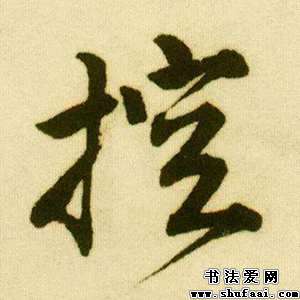 控
书法爱网
www.shufaai.com